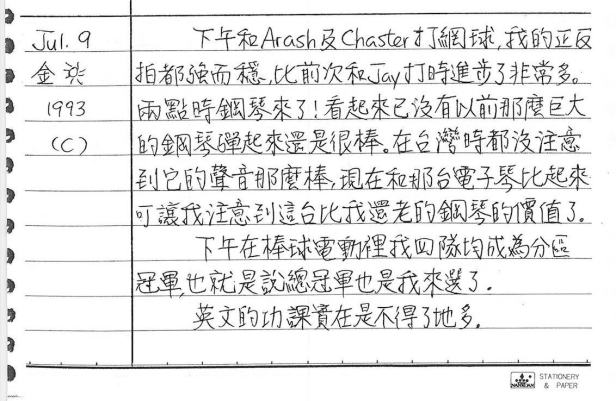 Jul. 9 下午和Arash及Chaster打網球,我的正反
金 拍都強而穩,比前次和Jay打時進步了非常多。
1993 兩點時鋼琴來了!看起來已沒有以前那麼巨大
(C) 的鋼琴彈起來還是很棒。在台灣時都沒注意
到它的聲音那麼棒,現在和那台電子琴比起來
可讓我注意到這台比我還老的鋼琴的價值了.
下午在棒球電動裡我四隊均成為分區
冠軍,也就是說總冠軍也是我來選了.
英文的功課實在是不得了地多.
STATIONERY
& PAPER